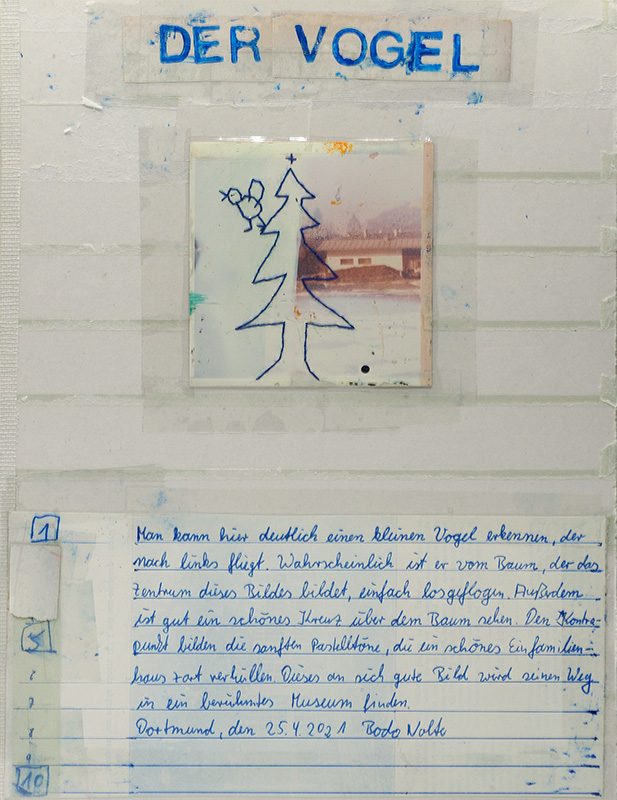 DER VOGEL
1
Man kann hier deutlich einen kleinen Vogel erkennen, der
nach links fliegt. Wahrscheinlich ist er vom Baum, der das
Zentrum dieses Bildes bildet, einfach losgeflogen. Außerdem
ist gut ein schönes Kreuz über dem Baum sehen. Den Kontra-
5
punkt bilden die sanften Pastelltöne, die ein schönes Einfamilien-
haus zart verhüllen. Dieses an sich gute Bild wird seinen Weg
in ein berühmtes Museum finden.
Dortmund, den 25.4.2021 Bodo Nolte
10